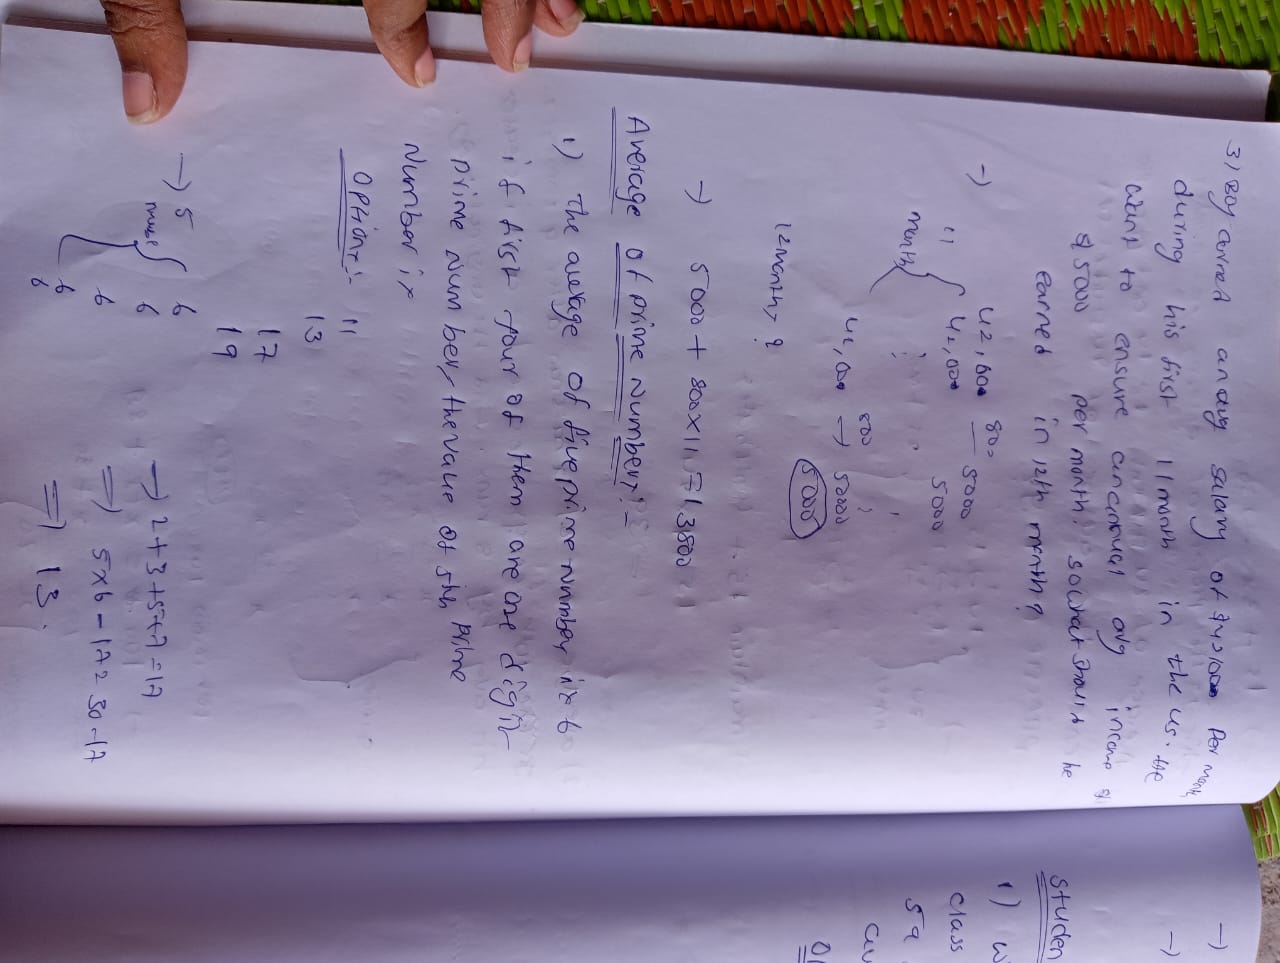 3) Boy earned an avg salary of $42,000 per month
during his first 11 month in the us. He
want to ensure an annual avg income of
$ 5000 per month. so what should he
earned in 12th month ?
→)
11 month
42,000 800 5000
42,000 5000
42,000 800 → 5000
12 month, ? 5000
→) 5000 + 800 x 11 = 13800
Average of prime numbers:-
1) the average of five prime number is 6
if first four of them are one digit
prime number, the value of 5th prime
number is
Options:- 11
13
17
19
→ 5
6
6
6
6
→ 2+3+5+7=17
=) 5x6-17=30-17
=) 13.
Studen
1) w
class
59
av